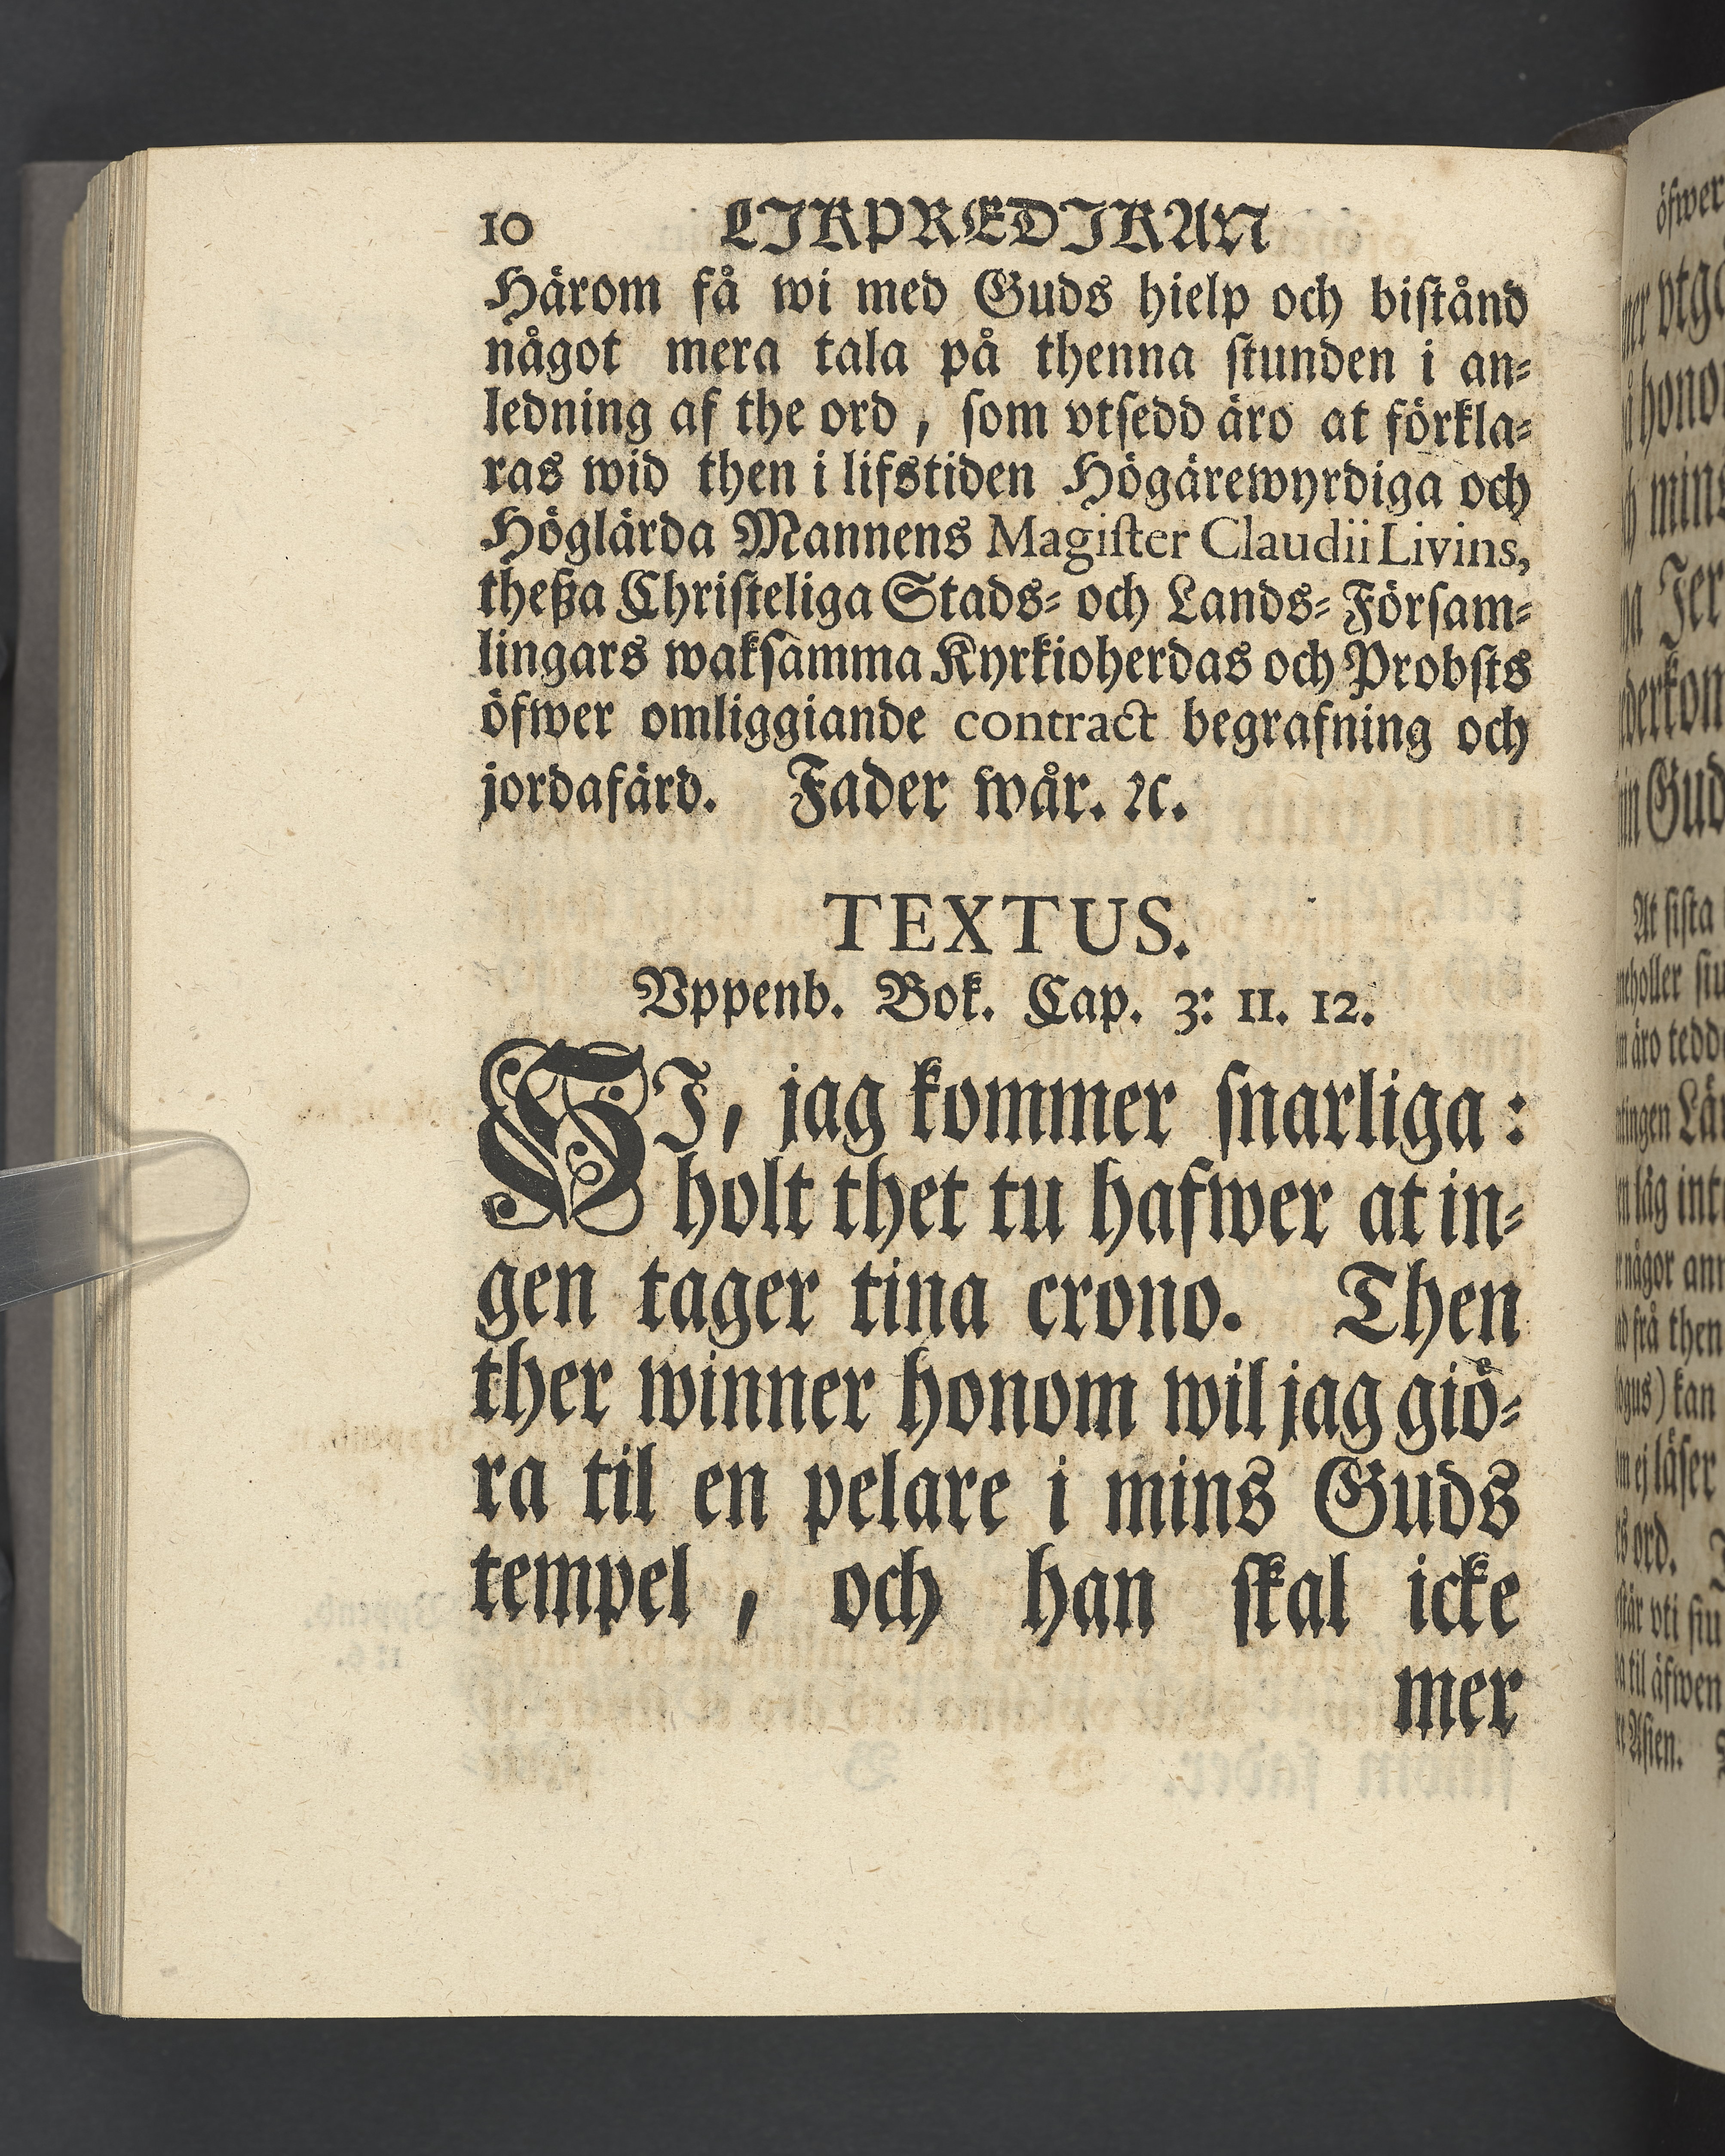 10 LIKPRÆDIKAN
Härom få wi med Guds hielp och biſtånd
något mera tala på thenna ſtunden i an⸗
ledning af the ord, ſom vtſedd äro at förkla⸗
ras wid then i lifstiden Högärewyrdiga och
Höglärda Mannens Magiſter Claudii Livins,
theßa Chriſteliga Stads⸗ och Lands⸗Förſam⸗
lingars wakſamma Kyrkioherdas och Probſts
öfwer omliggiande contract begrafning och
jordafärd. Fader wår. ꝛc.
TEXTUS.
Vppenb. Bok. Cap. 3: 11. 12.
SJ, jag kommer ſnarliga:
holt thet tu hafwer at in⸗
gen tager tina crono. Then
ther winner honom wil jag giö⸗
ra til en pelare i mins Guds
tempel, och han ſkal icke
mer
öfwer
vtg
hono
mins
Jer
derkom
Gud
At ſiſta
äro tedd
någor
frå then
kan
ej läſer
ord.
vti ſiu
til äfwen
Aſien.